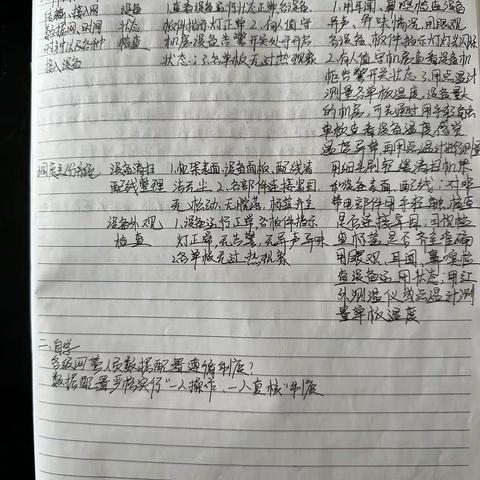 传输、接入网 设备 1.查看设备运行状态正常,各设备 1.用耳闻、鼻嗅检查设备
数据网、时间 状态 板件指示灯正常 2.有人值守 异声、异味情况,用眼观
时钟以及各种 检查 机房设备告警开关处于开启 各设备板件指示灯灯光闪烁
接入设备 状态;3.各单板无过热现象 2.有人值守机房查看设备机
柜告警开关状态 3.用点温计
测量各单板温度。设备量大
的机房,可先通过用手轻触
单板查看设备温度,感觉
温度异常再用点温计进行测量
设备清扫 1.机架表面、设备面板、配线清 用细毛刷轻缓清扫机架
配线整理 洁无尘 2.各部件连接牢固 和设备表面、配线;对非
无松动、无脱落、标签齐全 带电部件用手轻触检查
设备外观 1.设备运行正常,各板件指示 是否连接牢固,目视检
检查 灯正常、无告警、无异声异味 查标签是否齐全准确
2.各单板无过热现象 用眼观、耳闻、鼻嗅检
查设备运用状态,用红
外测温仪或点温计测
量单板温度
二、自学
各级网管人员数据配置遵循制度?
数据配置严格实行“一人操作、一人复核”制度